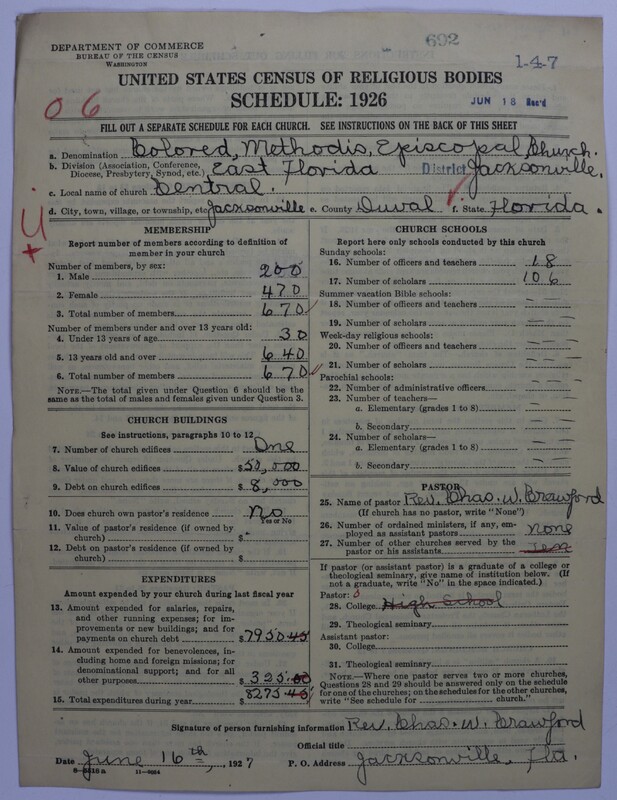 692
DEPARTMENT OF COMMERCE
BUREAU OF THE CENSUS
WASHINGTON
1-4-7
UNITED STATES CENSUS OF RELIGIOUS BODIES
SCHEDULE: 1926
JUN 18 Rec'd
06
FILL OUT A SEPARATE SCHEDULE FOR EACH CHURCH. SEE INSTRUCTIONS ON THE BACK OF THIS SHEET
a. Denomination Colored, Methodis, Episcopal, Church.
b. Division (Association, Conference, Diocese, Presbytery, Synod, etc.) East Florida District Jacksonville.
c. Local name of church Central.
d. City, town, village, or township, etc. Jacksonville e. County Duval f. State Florida.
MEMBERSHIP
Report number of members according to definition of
member in your church
Number of members, by sex:
1. Male 200
2. Female 470
3. Total number of members 670
Number of members under and over 13 years old:
4. Under 13 years of age 30
5. 13 years old and over 640
6. Total number of members 670
NOTE.—The total given under Question 6 should be
same as the total of males and females given under Question 3.
CHURCH BUILDINGS
See instructions, paragraphs 10 to 12
7. Number of church edifices One
8. Value of church edifices $50,000
9. Debt on church edifices $8,000
10. Does church own pastor's residence No
Yes or No
11. Value of pastor's residence (if owned by
church) $
12. Debt on pastor's residence (if owned by
church) $
EXPENDITURES
Amount expended by your church during last fiscal year
13. Amount expended for salaries, repairs,
and other running expenses; for im-
provements or new buildings; and for
payments on church debt $7950.45
14. Amount expended for benevolences,
including home and foreign missions; for
denominational support; and for all
other purposes $325.00
15. Total expenditures during year $8275.45
CHURCH SCHOOLS
Report here only schools conducted by this church
Sunday schools:
16. Number of officers and teachers 18
17. Number of scholars 106
Summer vacation Bible schools:
18. Number of officers and teachers
19. Number of scholars
Week-day religious schools:
20. Number of officers and teachers
21. Number of scholars
Parochial schools:
22. Number of administrative officers
23. Number of teachers—
a. Elementary (grades 1 to 8)
b. Secondary
24. Number of scholars—
a. Elementary (grades 1 to 8)
b. Secondary
PASTOR
25. Name of pastor Rev. Chas. W. Crawford
(If church has no pastor, write "None")
26. Number of ordained ministers, if any, em-
ployed as assistant pastors none
27. Number of other churches served by the
pastor or his assistants
If pastor (or assistant pastor) is a graduate of a college or
theological seminary, give name of institution below. (If
not a graduate, write "No" in the space indicated.)
Pastor:
28. College High School
29. Theological seminary
Assistant pastor:
30. College
31. Theological seminary
NOTE.—Where one pastor serves two or more churches,
Questions 28 and 29 should be answered only on the schedule
for one of the churches; on the schedules for the other churches,
write "See schedule for church."
Signature of person furnishing information Rev. Chas. W. Crawford
Official title
Date June 16th, 1927 P. O. Address Jacksonville, Fla.